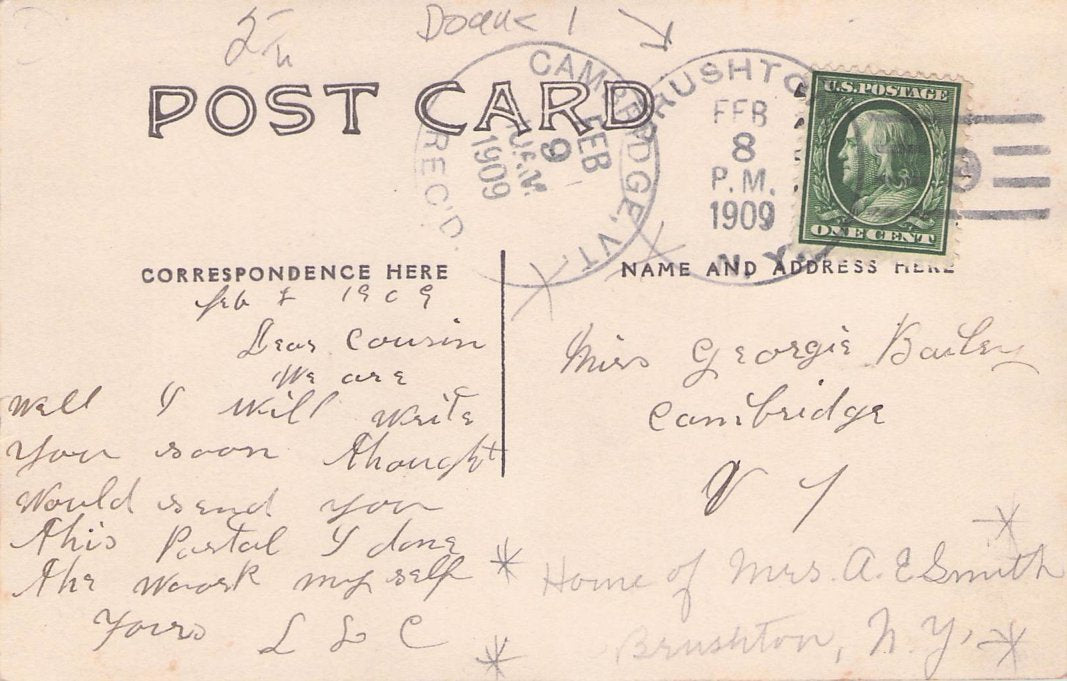 Doane 1
POST CARD
CAMBRIDGE, VT.
FEB
9
1909
REC'D.
BRUSHTO
FEB
8
P. M.
1909
N. Y.
U.S. POSTAGE
ONE CENT
CORRESPONDENCE HERE
NAME AND ADDRESS HERE
Feb 8 1909
Dear Cousin
We are
Well I will write
you soon thought
Would send you
this Postal I done
the woork my self
Yours L E C
Miss Georgie Bailey
Cambridge
V T
Home of Mrs. A. E Smith
Brushton, N. Y.